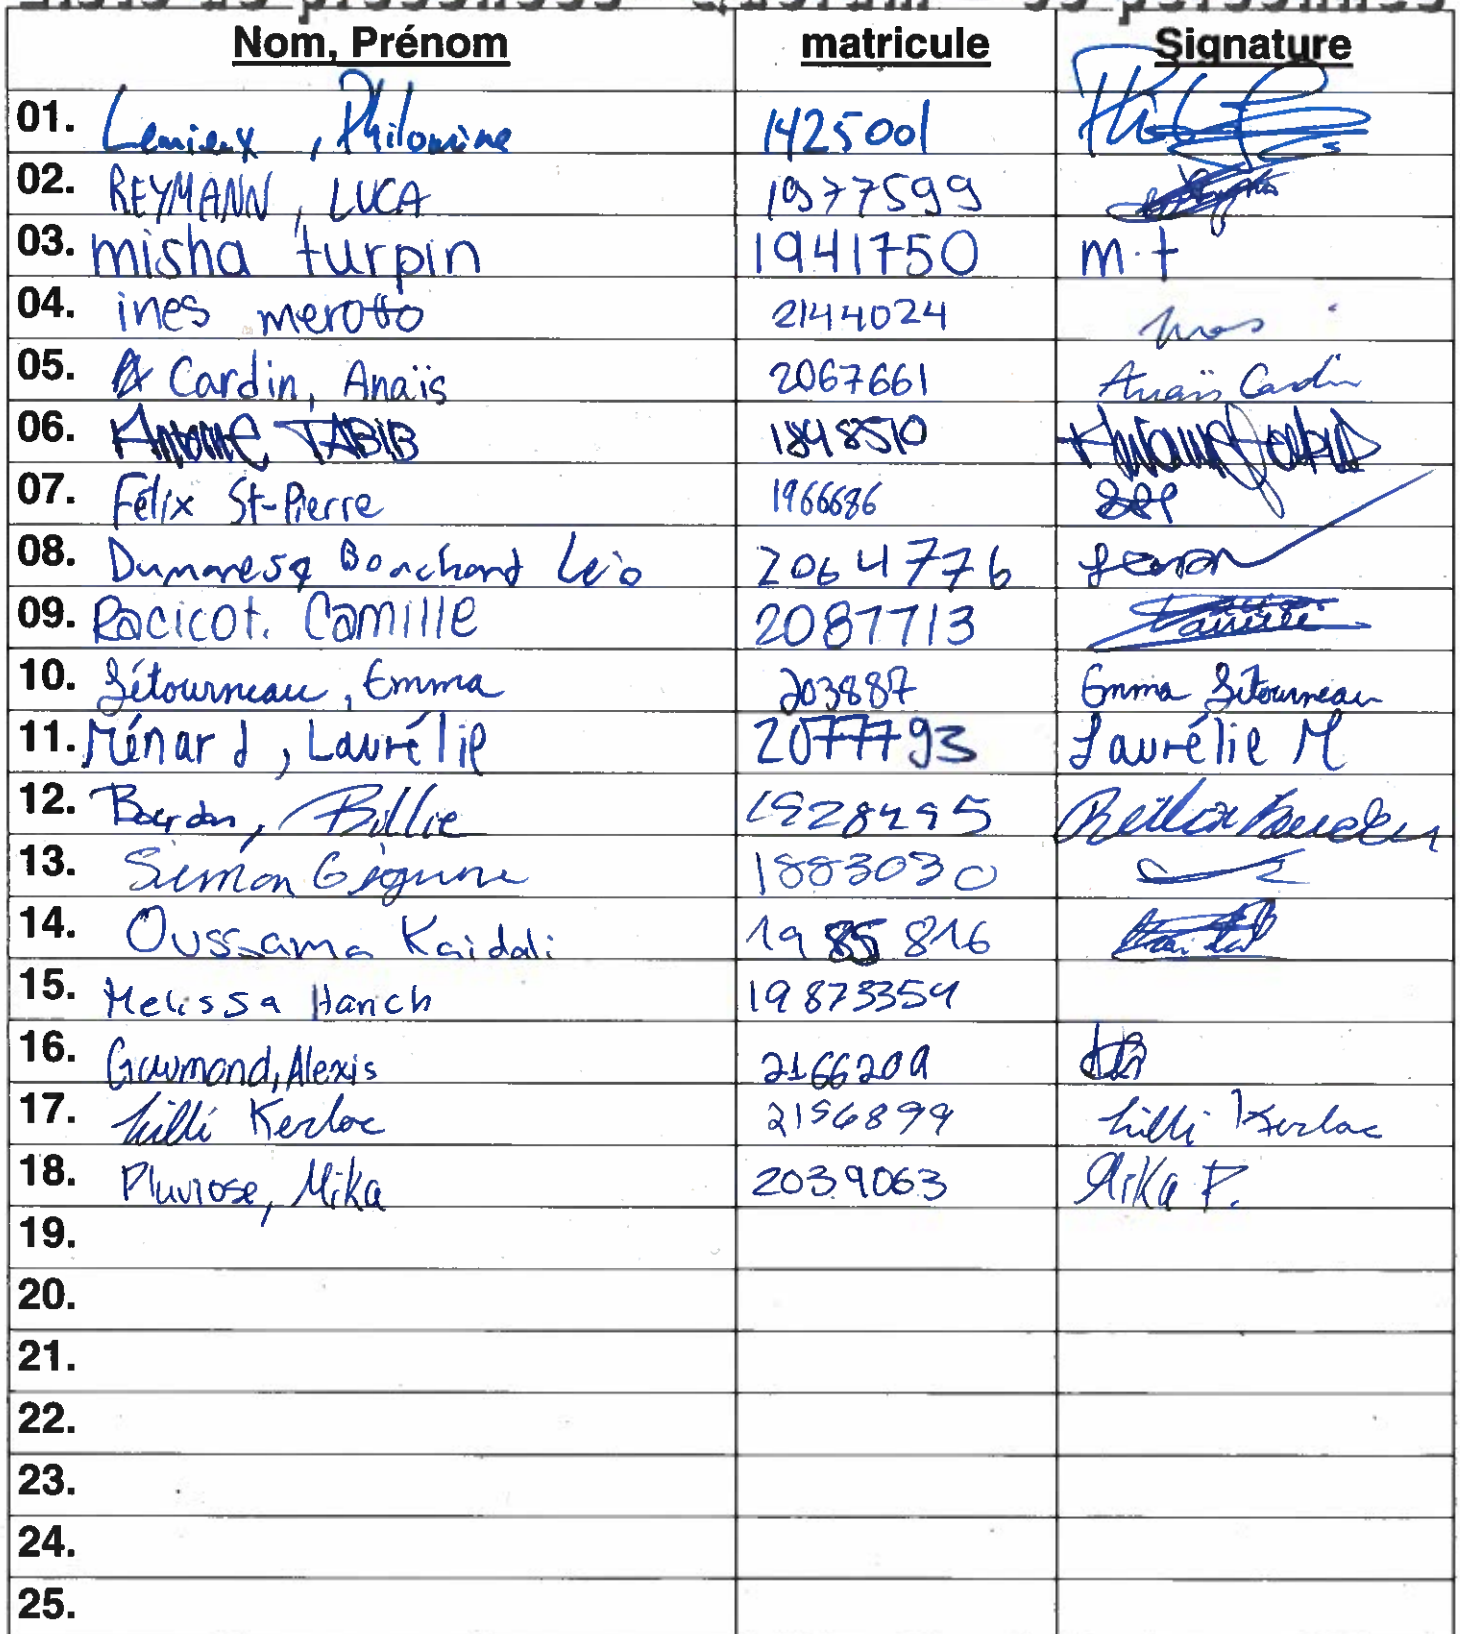 Liste de présences - Quorum - 
Nom, Prénom matricule Signature
01. Lemieux, Philomène 1425001
02. REYMANN, LUCA 1977599
03. misha turpin 1941750 m.t
04. ines merotto 2144024 Ines
05. Cardin, Anaïs 2067661 Anaïs Cardin
06. Antoine TABIB 1848510
07. Félix St-Pierre 1966686
08. Dumaresq Bouchard Léo 2064776
09. Racicot. Camille 2087713 Camille
10. Létourneau, Emma 203887 Emma Létourneau
11. Ménard, Laurélie 2077793 Laurélie M
12. Billie
13. Simon 1883030
14. Oussama Kaidali 1985816
15. Melissa Hanch 19873354
16. Gaumond, Alexis 2166209
17. Lilli Kerloc Lilli Kerloc
18. Pluviose, Mika 2039063 Mika P.
19.
20.
21.
22.
23.
24.
25.